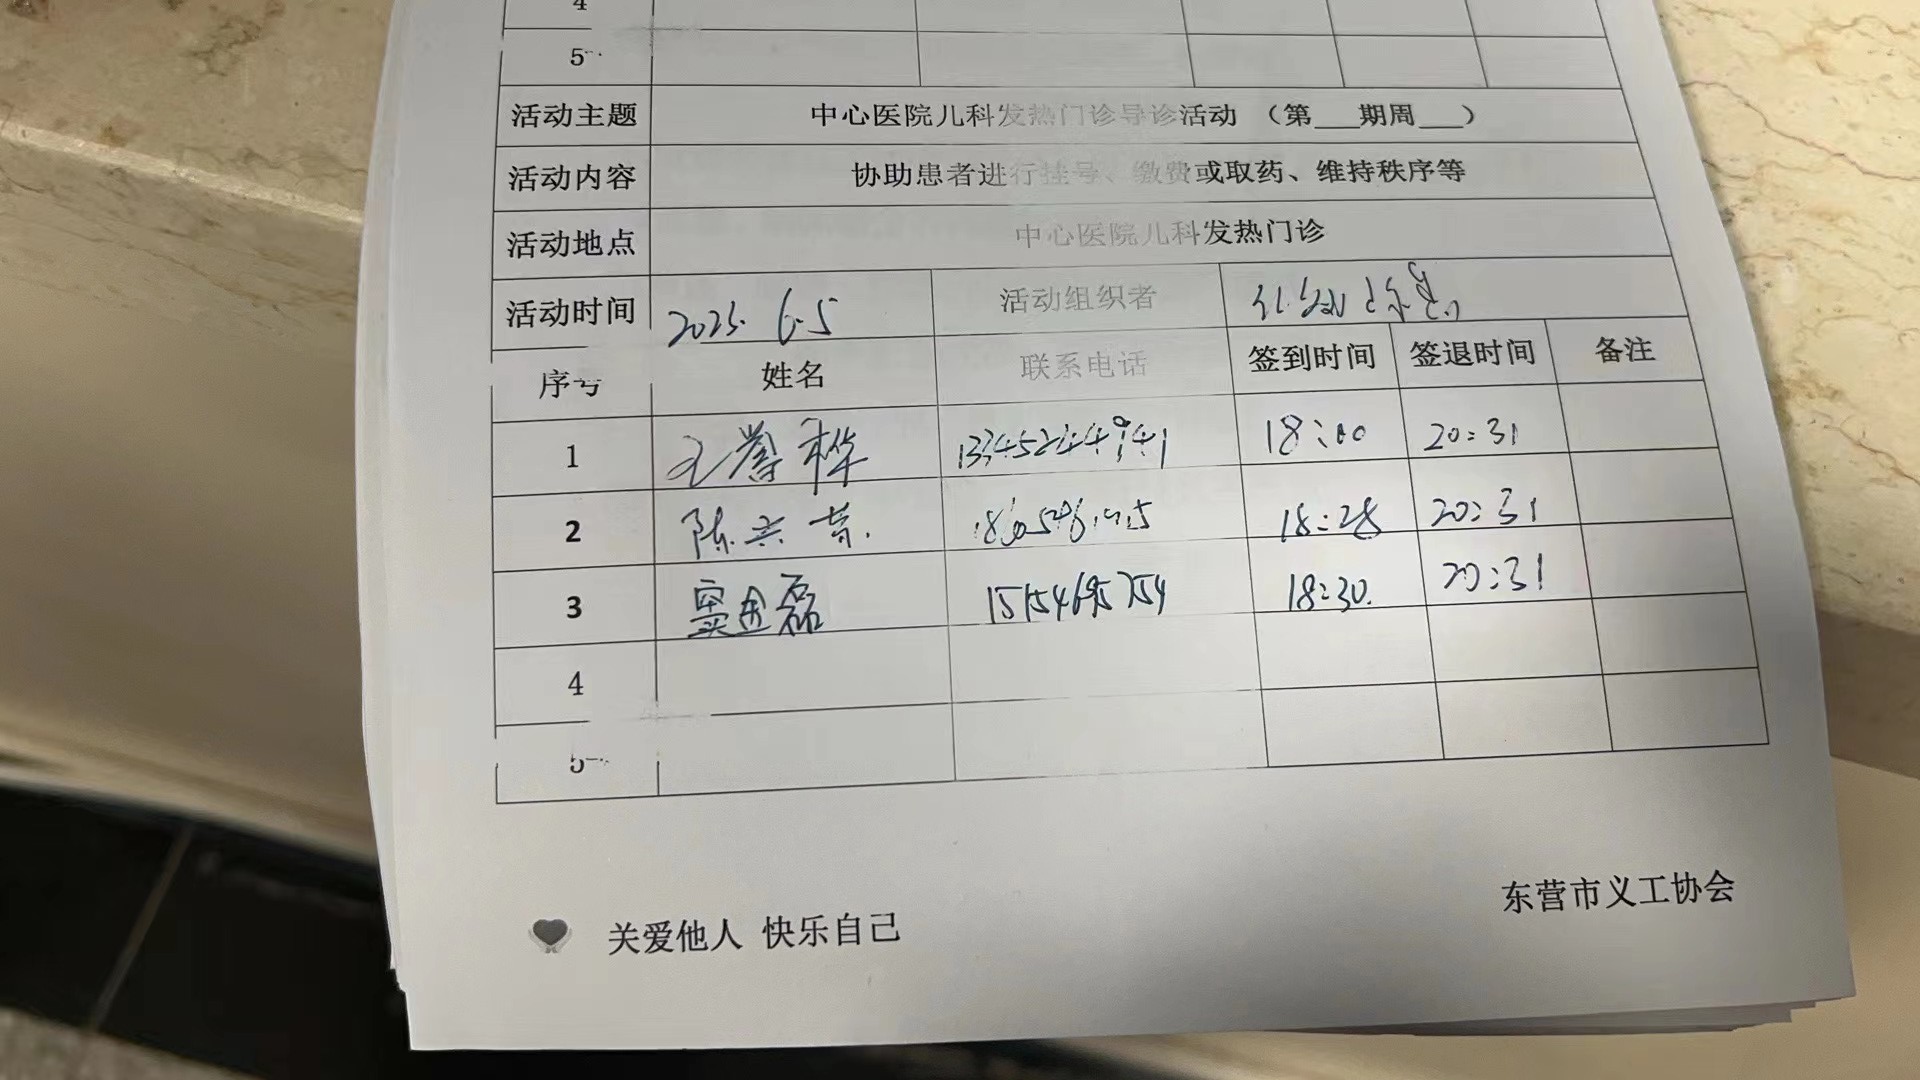 4
5
活动主题 中心医院儿科发热门诊导诊活动 （第___期周___）
活动内容 协助患者进行挂号、缴费或取药、维持秩序等
活动地点 中心医院儿科发热门诊
活动时间 2025. 6.5 活动组织者
序号 姓名 联系电话 签到时间 签退时间 备注
1 18:00 20:31
2 陈兴 18:28 20:31
3 窦金磊 15154695754 18:30. 20:31
4
5
东营市义工协会
关爱他人 快乐自己